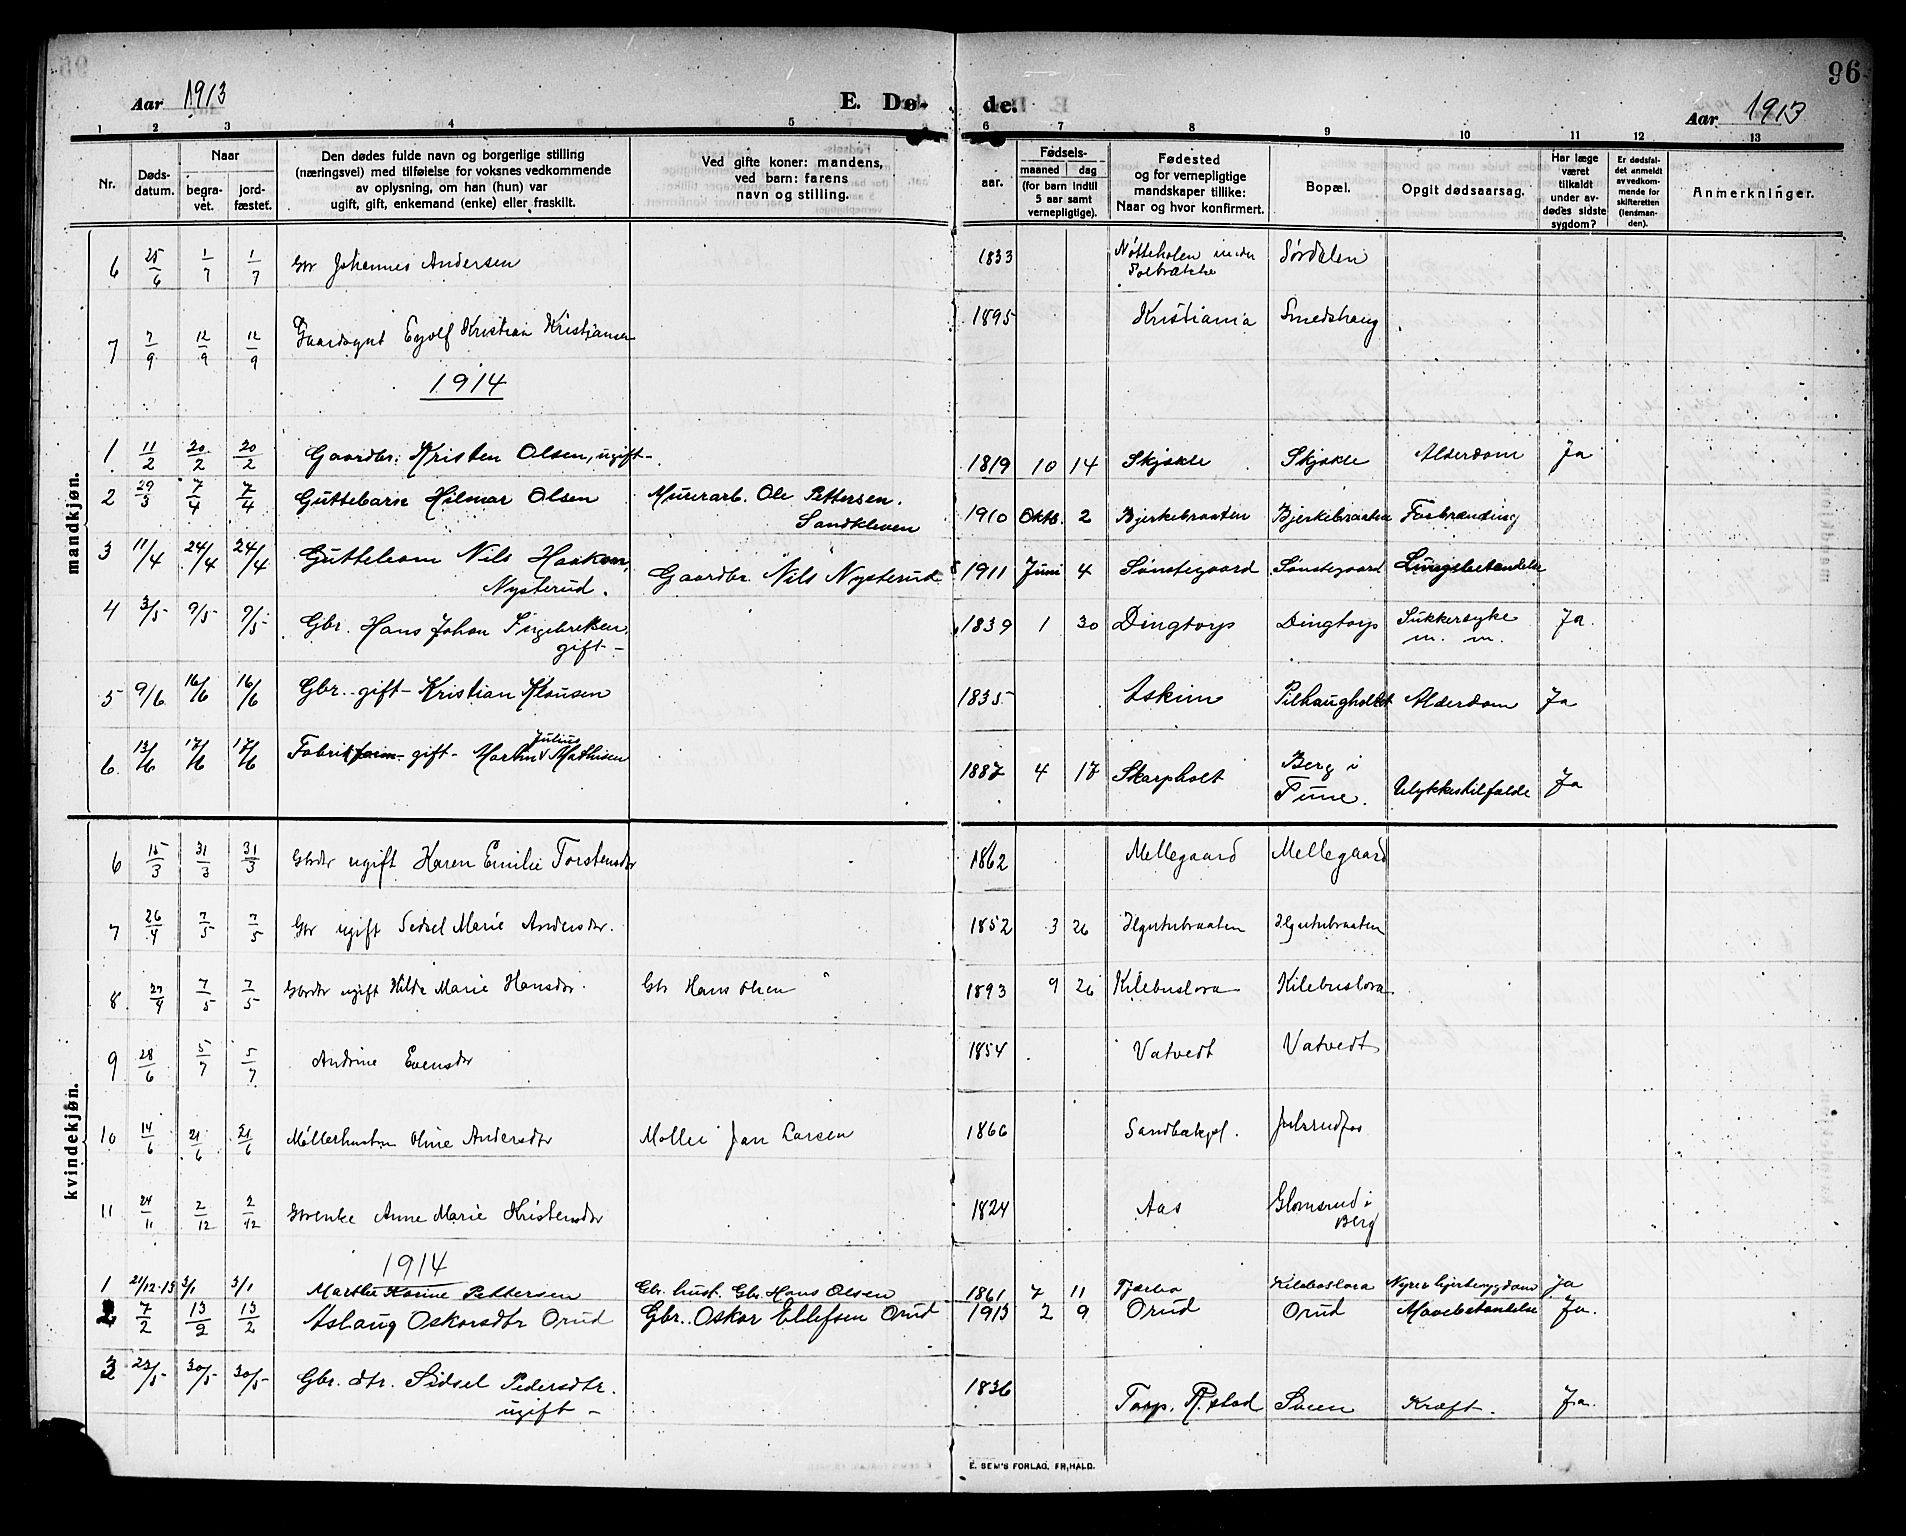 96
Aar 1913 E. Dø- de. Aar 1913
1 2 3 4 5 6 7 8 9 10 11 12 13
Nr. Døds-datum. Naar begra-vet. jord-fæstet. Den dødes fulde navn og borgerlige stilling (næringsvei) med tilføielse for voksnes vedkommende av oplysning, om han (hun) var ugift, gift, enkemand (enke) eller fraskilt. Ved gifte koner: mandens, ved barn: farens navn og stilling. Fødsels- aar. maaned dag (for barn indtil 5 aar samt vernepligtige). Fødested og for vernepligtige mandskaper tillike: Naar og hvor konfirmert. Bopæl. Opgit dødsaarsag. Har læge været tilkaldt under av-dødes sidste sygdom? Er dødsfal-det anmeldt av vedkom-mende for skifteretten (lensman-den). Anmerkninger.
mandkjøn.
6 25/6 1/7 1/7 Gbr Johannes Andersen 1833 Nøtteholen under Solbrække Sørdalen
7 7/9 12/9 12/9 Gaardsgut Eyolf Kristian Kristiansen 1895 Kristiania Smedshaug
1914
1. 11/2 20/2 20/2 Gaardbr. Kristen Olsen, ugift 1819 10 14 Skjække Skjække Alderdom Ja
2 29/3 7/4 7/4 Guttebarn Hilmar Olsen Murerarb. Ole Pettersen. Sandkleven 1910 Oktb. 2 Bjerkebraaten Bjerkebraaten Forbrænding
3 11/4 24/4 24/4 Guttebarn Nils Haakon, Nysterud. Gaardbr. Nils Nysterud 1911 Juni 4 Sønstegaard Sønstegaard Lungebetændelse
4 3/5 9/5 9/5 Gbr. Hans Johan Ingebretsen, gift 1839 1 30 Dingtorp Dingtorp Sukkersyke m. m. Ja.
5 9/6 16/6 16/6 Gbr. gift Kristian Klausen 1835 Askim Pilhaugholtet Alderdom Ja
6 13/6 17/6 17/6 gift Martin Julius Mathisen 1887 4 17 Skarpholt Berg i Tune. Ulykkestilfælde Ja
kvindekjøn.
6 15/3 31/3 31/3 Gbrdtr ugift Karen Emilie Torstensdtr 1862 Mellegaard Mellegaard
7 26/4 7/5 7/5 Gbr ugift Sidsel Marie Andersdtr. 1852 3 26
8 27/4 7/5 7/5 Gbrdtr ugift Hilda Marie Hansdtr. Gbr Hans Olsen 1893 9 26 Kilebuslora Kilebuslora
9 28/6 5/7 5/7 Andrine Evensdtr 1854 Vatvedt Vatvedt
10 14/6 21/6 21/6 Møllerhustru Oline Andersdtr Møller Jan Larsen 1866 Sandbækpl. Julsrudfos
11 24/11 2/12 2/12 Gbrenke Anne Marie Kristensdtr 1824 Aas Glomsrud i Berg
1914
1 21/12-13 3/1 3/1 Marthe Karine Pettersen Gbr. hust. Gbr. Hans Olsen 1861 7 11 Tjærbo Kilebuslora Nyre hjertesygdom Ja
2 7/2 13/2 13/2 Aslaug Oskarsdtr Orud Gbr. Oskar Ellefsen Orud 1913 2 9 Orud Orud Mavebetændelse Ja.
3 23/5 30/5 30/5 Gbr. dtr. Sidsel Pedersdtr. ugift 1836 Torp, R.stad Sven Kræft. Ja.
E. SEM'S FORLAG, FR.HALD.